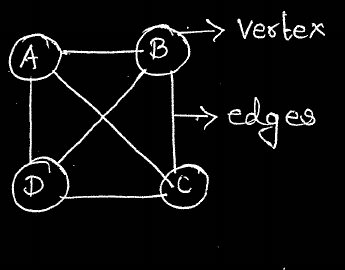 A
B
vertex
edges
D
C